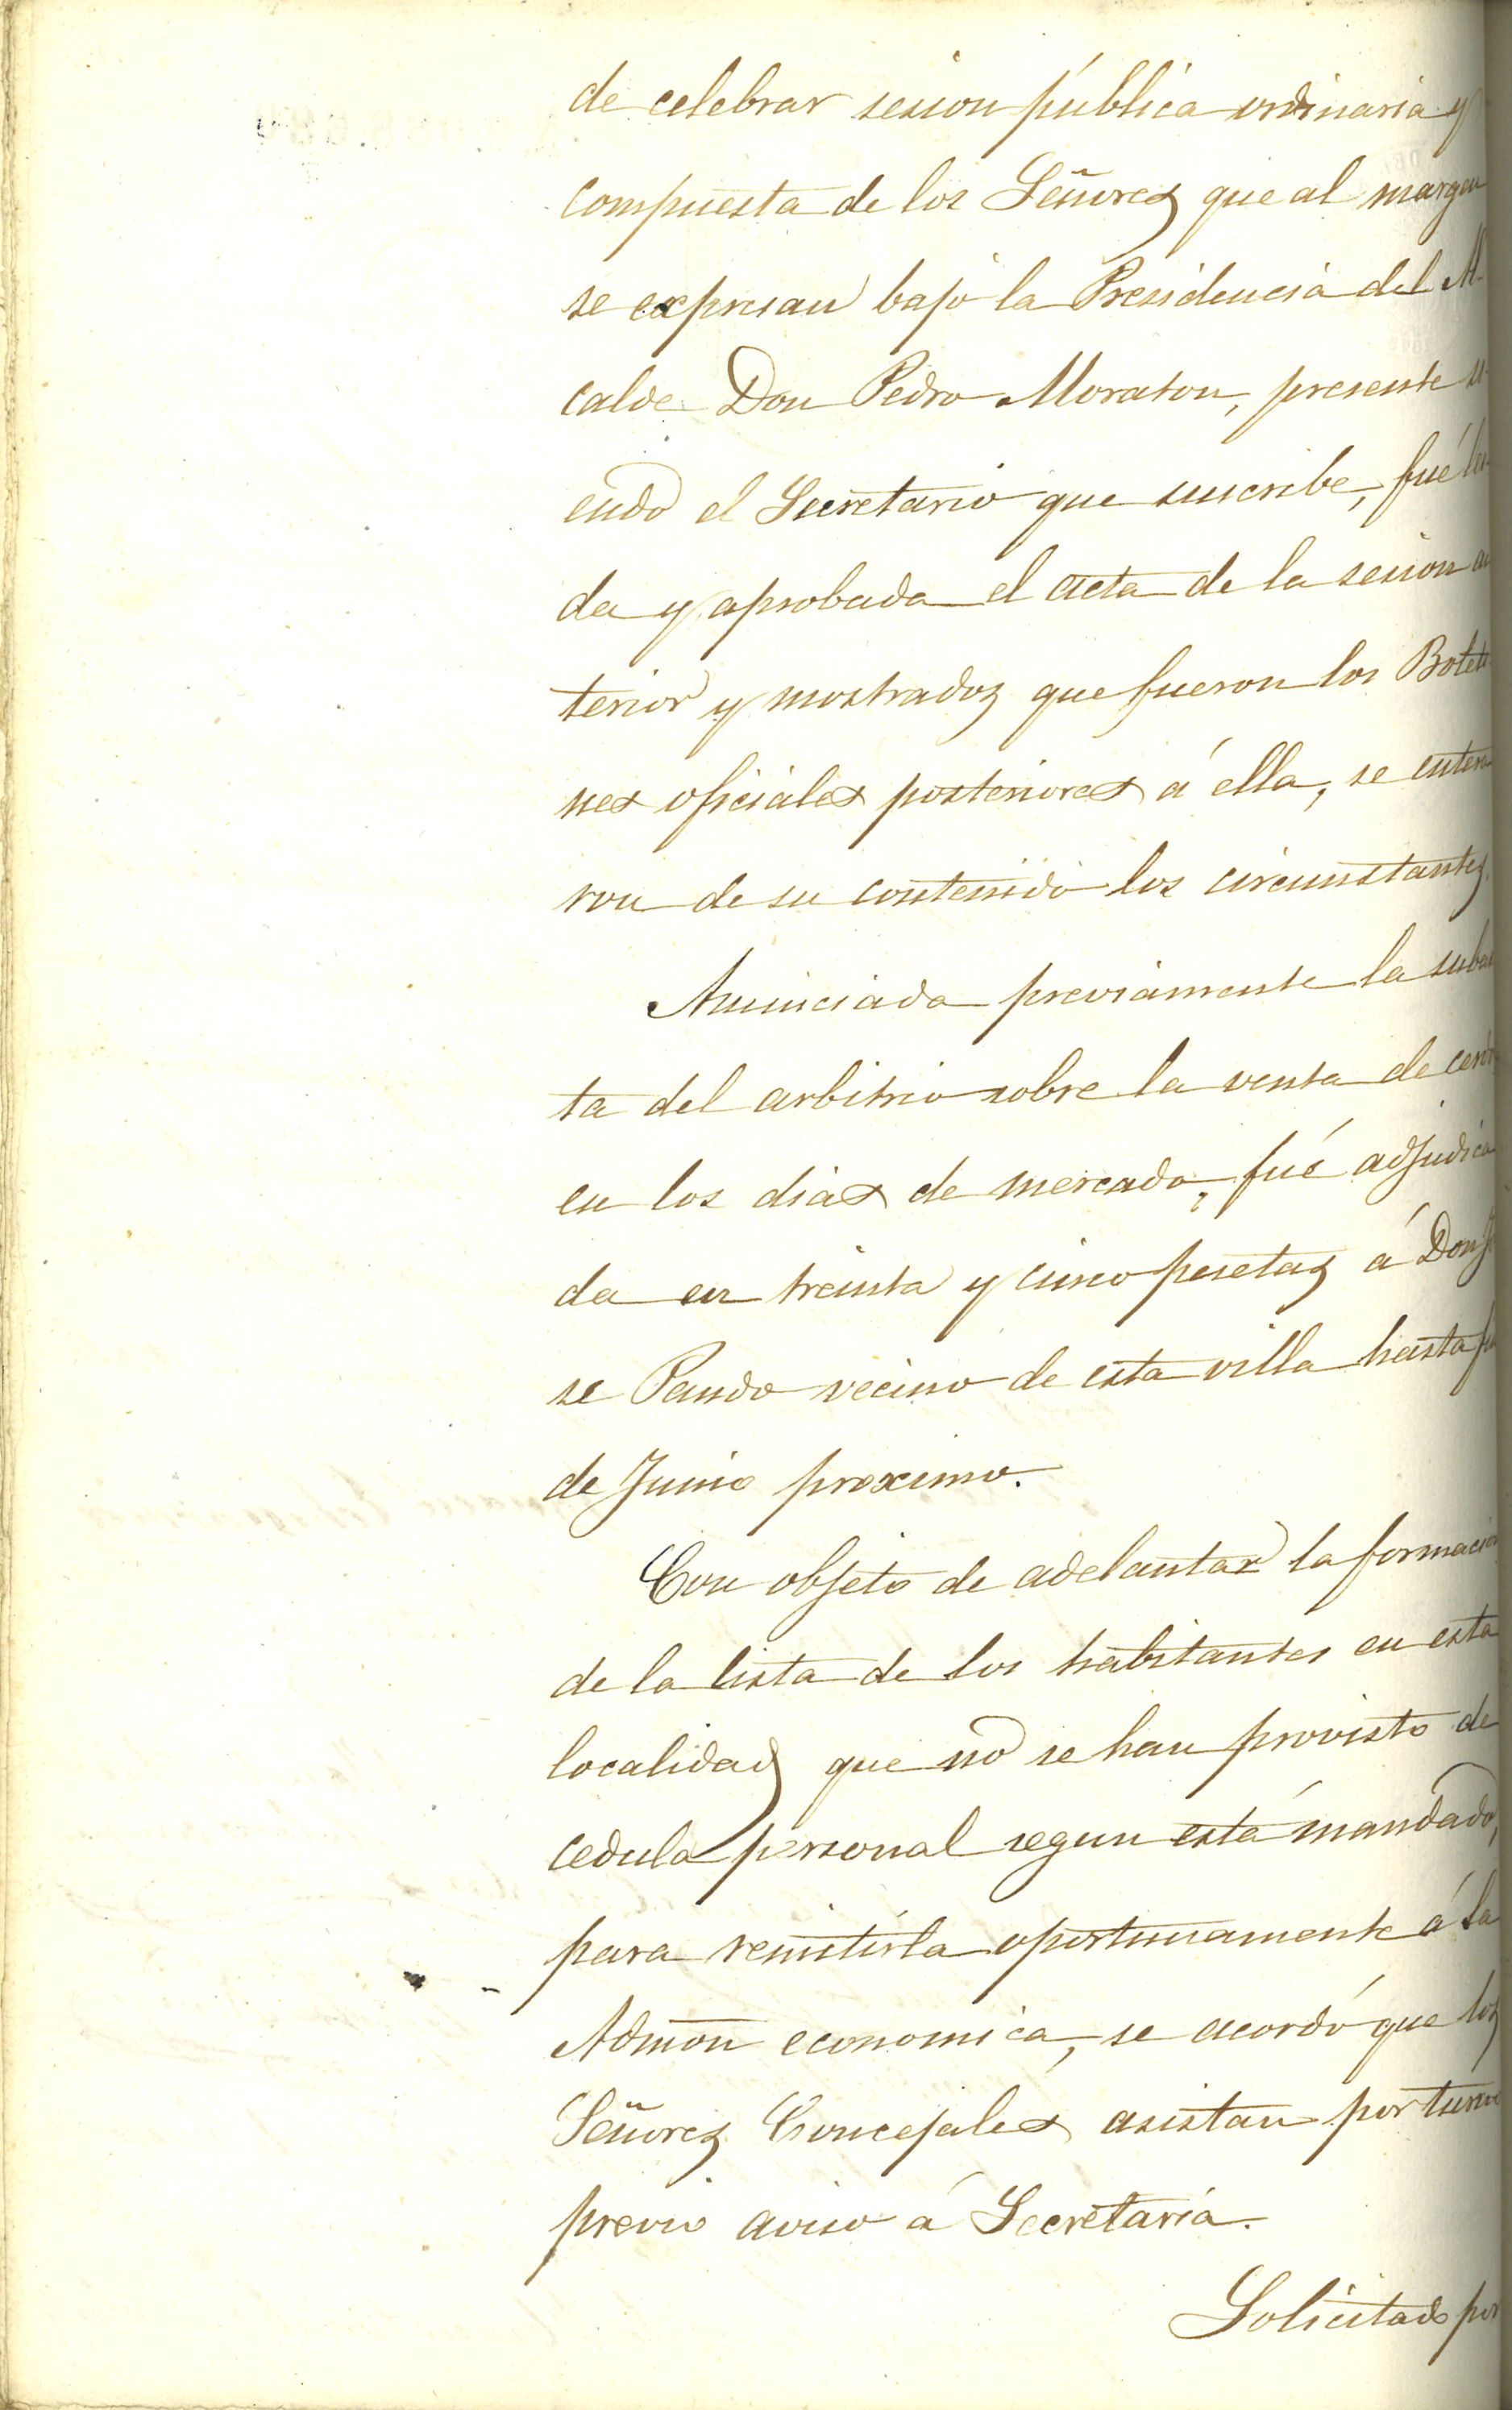 de celebrar sesion pública ordinaria y
compuesta de los Señores que al margen
se expresan bajo la Presidencia del Al-
calde Don Pedro Moraton, presente si-
endo el Secretario que suscribe, fué lei-
da y aprobada el acta de la sesion an
terior y mostrados que fueron los Boleti
nes oficiales posteriores á ella, se entera
ron de su contenido los circunstantes.
Anunciada previamente la subas
ta del arbitrio sobre la venta de cerdos
en los dias de mercado, fué adjudica
da en treinta y cinco pesetas á Don Jo
se Pando vecino de esta villa hasta fin
de Junio proximo.
Con objeto de adelantar la formacion
de la lista de los habitantes en esta
localidad que no se han provisto de
cedula personal segun está mandado,
para remitirla oportunamente á la
Admon economica, se acordó que los
Señores Concejales asistan por turno
previo aviso á Secretaría.
Solicitado por